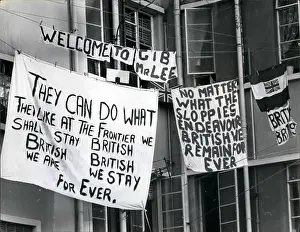 WELCOME TO GIB
MR LEE
THEY CAN DO WHAT
THEY LIKE AT THE FRONTIER WE
SHALL STAY BRITISH
BRITISH BRITISH
WE ARE WE STAY
FOR EVER.
NO MATTER
WHAT THE
SLOPPIES
ENDEAVOUR
BRITISH WE
REMAIN FOR
EVER
BRIT
BRITIS